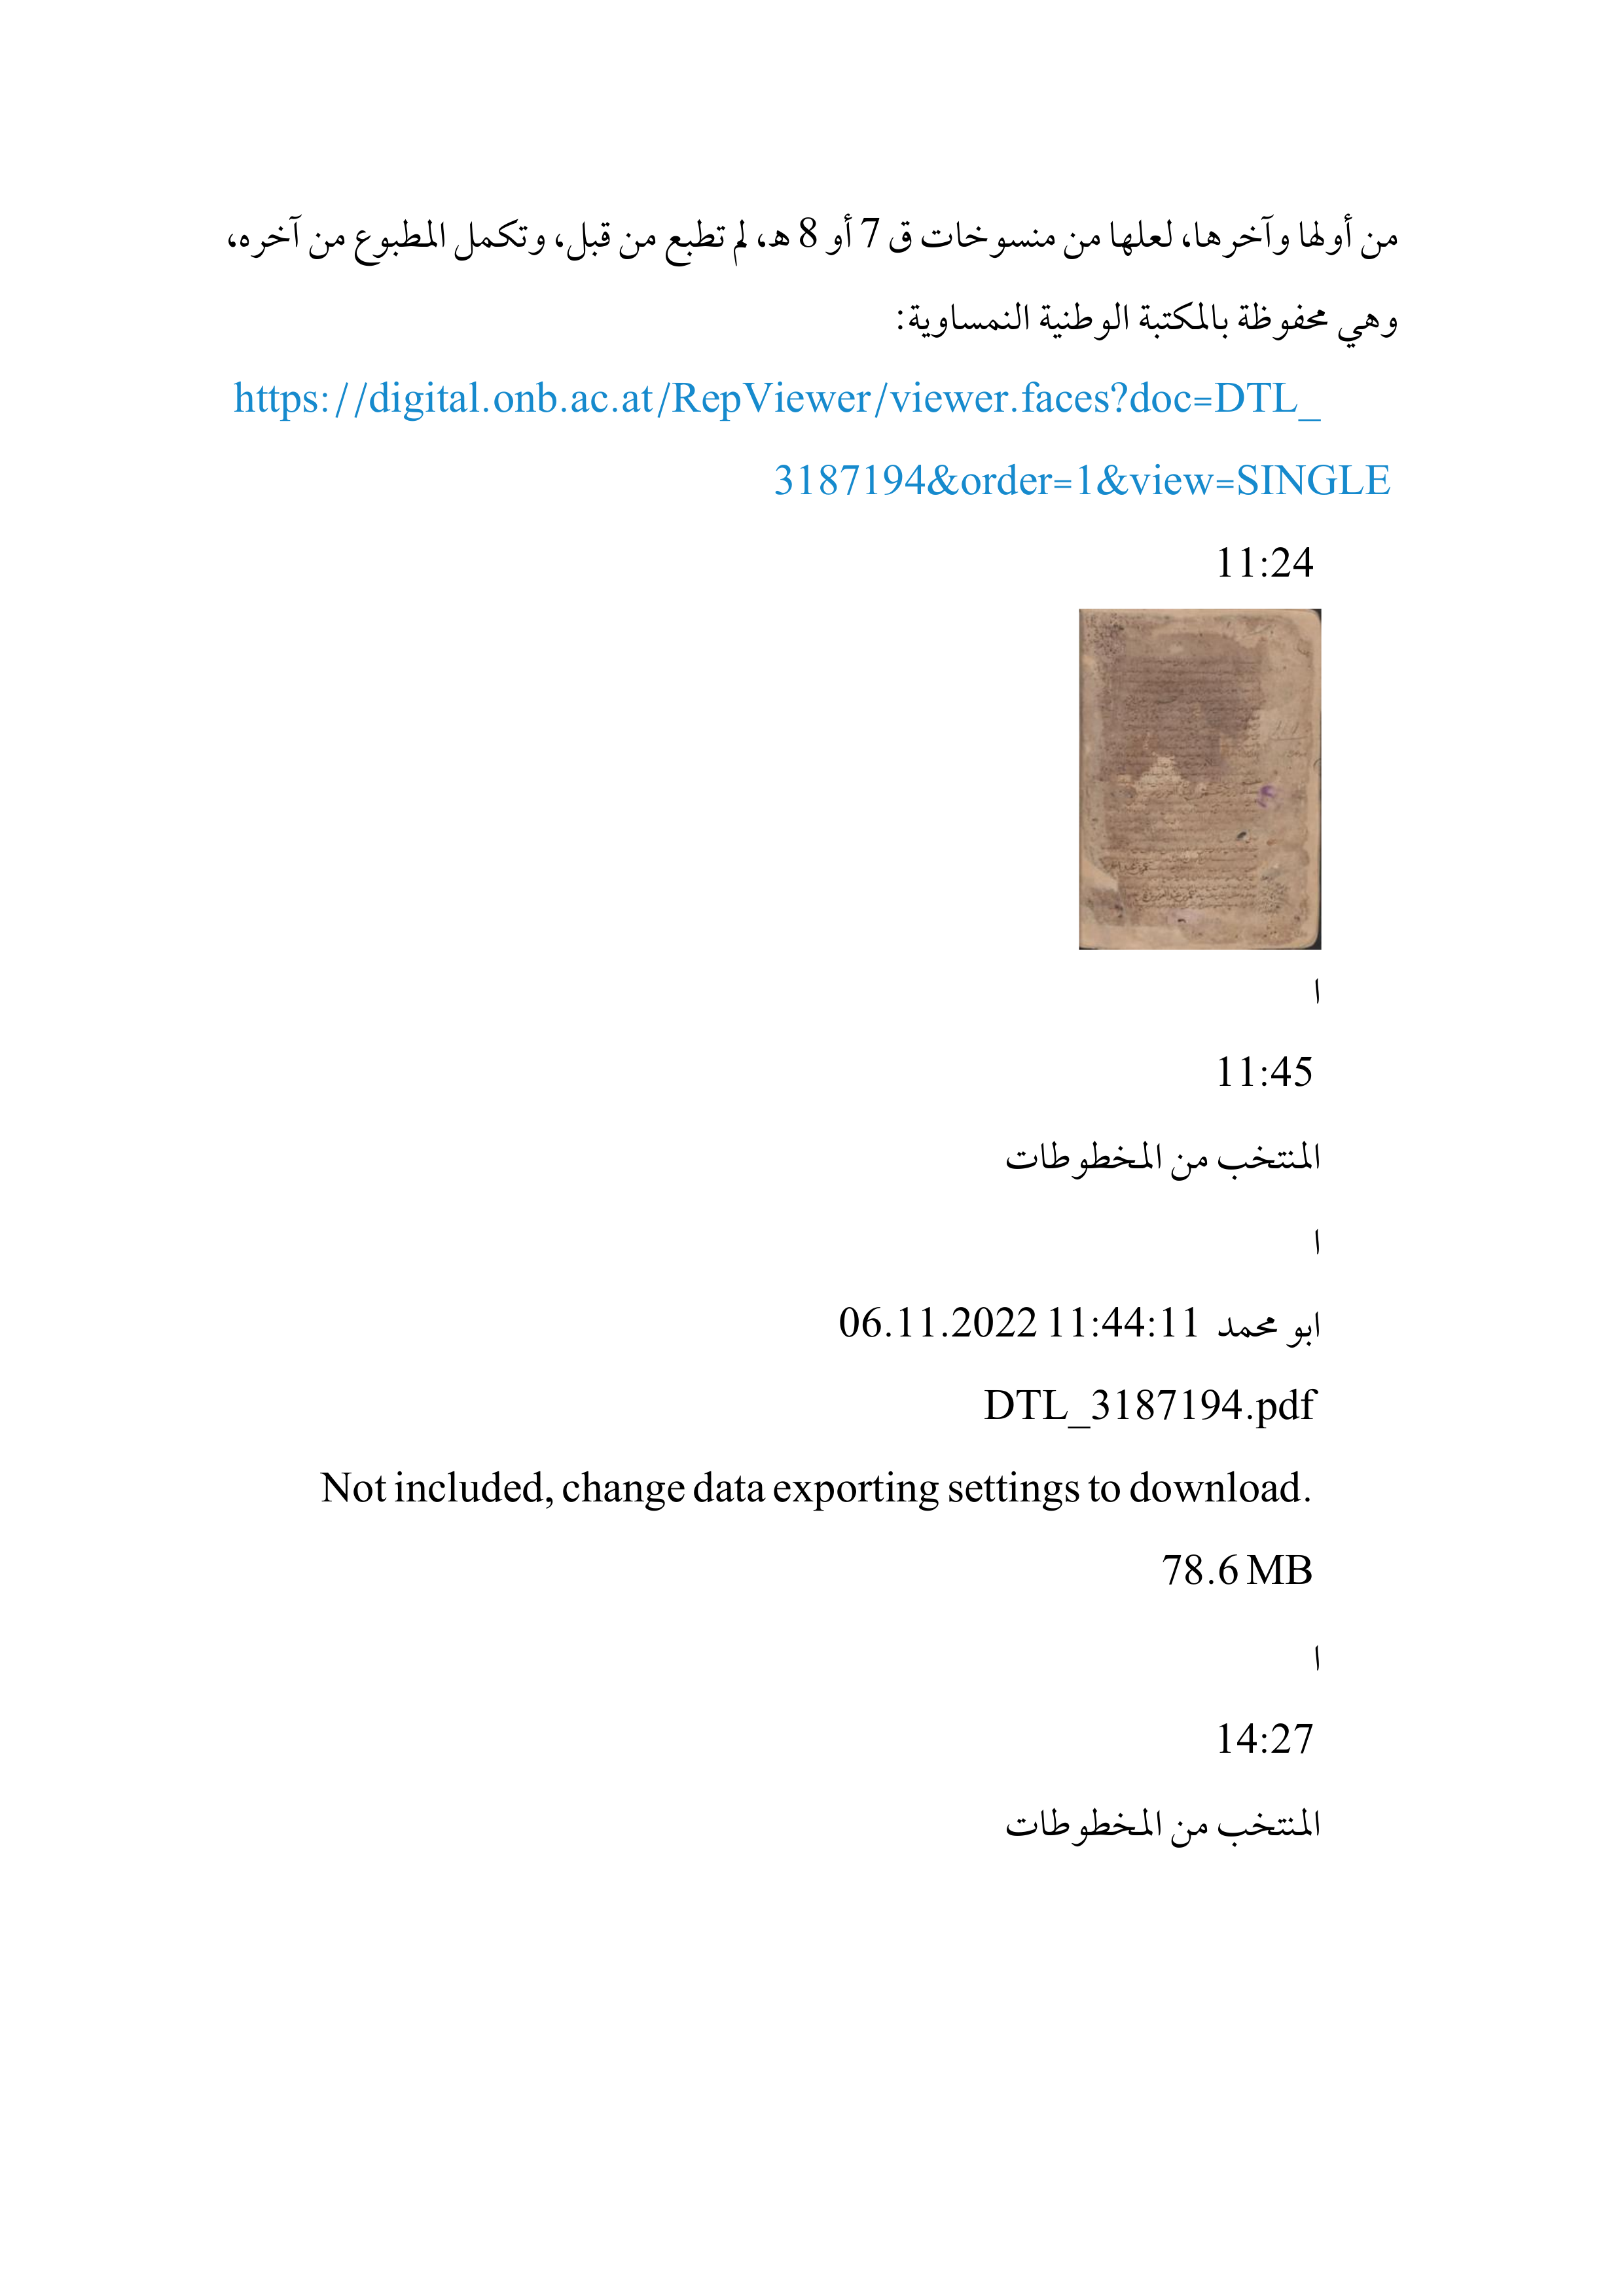 من أولها وآخرها، لعلها من منسوخات ق 7 أو 8 هـ، لم تطبع من قبل، وتكمل المطبوع من آخره،
وهي محفوظة بالمكتبة الوطنية النمساوية:
https://digital.onb.ac.at/RepViewer/viewer.faces?doc=DTL_
3187194&order=1&view=SINGLE
11:24
ا
11:45
المنتخب من المخطوطات
ا
ابو محمد 06.11.2022 11:44:11
DTL_3187194.pdf
Not included, change data exporting settings to download.
78.6 MB
ا
14:27
المنتخب من المخطوطات